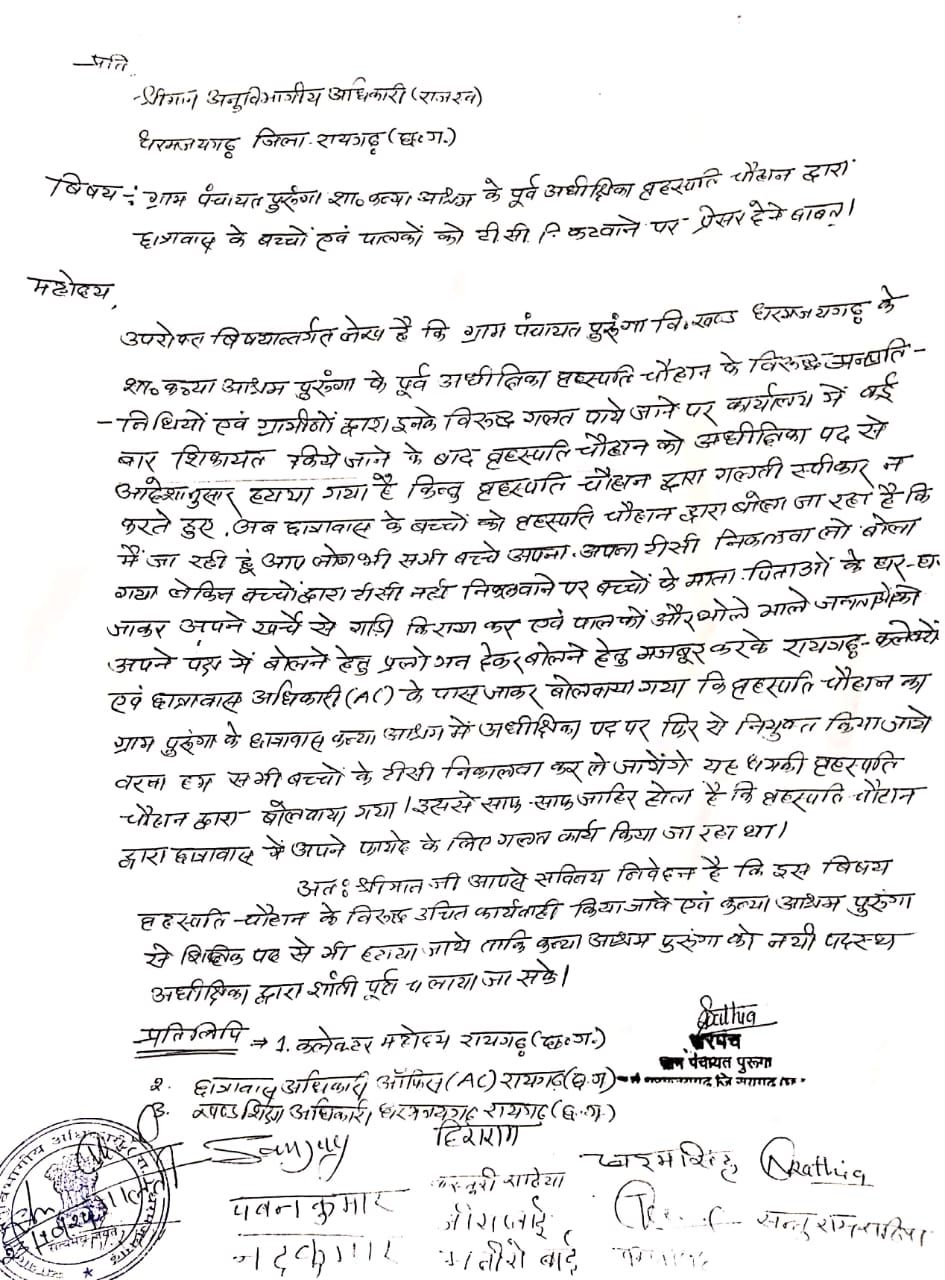 प्रति,
श्रीमान अनुविभागीय अधिकारी (राजस्व)
धरमजयगढ़ जिला-रायगढ़ (छ.ग.)
विषय:- ग्राम पंचायत पुरुंगा शा० कन्या आश्रम के पूर्व अधीक्षिका बृहस्पति चौहान द्वारा
छात्रावास के बच्चों एवं पालकों को टी.सी. कटवाने पर प्रेसर देने बाबत्।
महोदय,
उपरोक्त विषयान्तर्गत लेख है कि ग्राम पंचायत पुरुंगा वि.खण्ड धरमजयगढ़ के
शा० कन्या आश्रम पुरुंगा के पूर्व अधीक्षिका बृहस्पति चौहान के विरूद्ध जनप्रति-
-निधियों एवं ग्रामीणों द्वारा इनके विरूद्ध गलत पाये जाने पर कार्यालय में कई
बार शिकायत किये जाने के बाद बृहस्पति चौहान को अधीक्षिका पद से
आदेशानुसार हटाया गया है किन्तु बृहस्पति चौहान द्वारा गलती स्वीकार न
करते हुए, अब छात्रावास के बच्चों को बृहस्पति चौहान द्वारा बोला जा रहा है कि
मैं जा रही हूं आप लोग भी सभी बच्चे अपना-अपना टीसी निकलवा लो बोला
गया लेकिन बच्चों द्वारा टीसी नहीं निकलवाने पर बच्चों के माता-पिताओं के घर-घर
जाकर अपने खर्चे से गाड़ी किराया कर एवं पालकों और भोले भाले जनता को
अपने पक्ष में बोलने हेतु प्रलोभन देकर बोलने हेतु मजबूर करके रायगढ़-कलेक्टर
एवं छात्रावास अधिकारी (AC) के पास जाकर बोलवाया गया कि बृहस्पति चौहान का
ग्राम पुरुंगा के छात्रावास कन्या आश्रम में अधीक्षिका पद पर फिर से नियुक्त किया जाये
वरना हम सभी बच्चों के टीसी निकालवा कर ले जायेंगे यह धमकी बृहस्पति
चौहान द्वारा बोलवाया गया। इससे साफ-साफ जाहिर होता है कि बृहस्पति चौहान
द्वारा छात्रावास में अपने फायदे के लिए गलत कार्य किया जा रहा था।
अतः श्रीमान जी आपसे सविनय निवेदन है कि इस विषय
बृहस्पति चौहान के विरूद्ध उचित कार्यवाही किया जाये एवं कन्या आश्रम पुरुंगा
से शिक्षक पद से भी हटाया जाये ताकि कन्या आश्रम पुरुंगा को नयी पदस्थ
अधीक्षिका द्वारा शांती पूर्ण चलाया जा सके।
प्रतिलिपि → 1. कलेक्टर महोदय रायगढ़ (छ.ग.)
Rathia
सरपंच
ग्राम पंचायत पुरुंगा
2. छात्रावास अधिकारी ऑफिस (AC) रायगढ़ (छ.ग)
3. खण्ड शिक्षा अधिकारी धरमजयगढ़ रायगढ़ (छ.ग.)
Sanjay हिराराम
Rathia
पवन कुमार कस्तुरी राठिया
मीरा बाई सन्तुराम राठिया
नंदकुमार मतीरो बाई